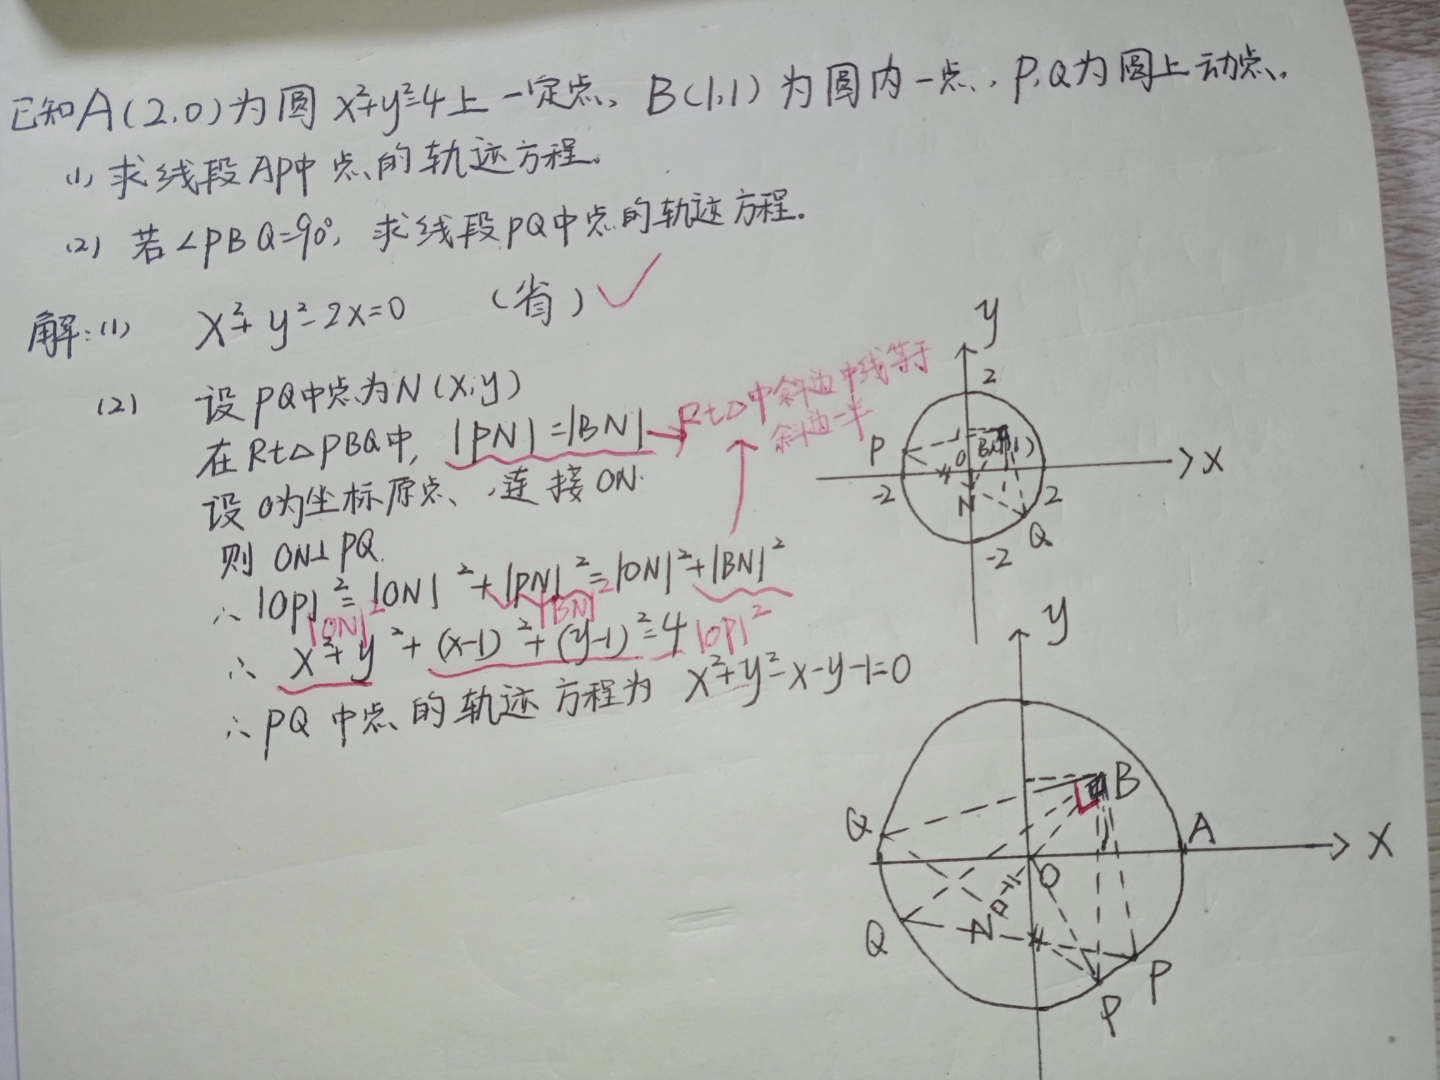 已知A(2,0)为圆x²+y²=4上一定点、B(1,1)为圆内一点、P,Q为圆上动点、
(1) 求线段AP中点的轨迹方程。
(2) 若∠PBQ=90°, 求线段PQ中点的轨迹方程。
解:(1) x²+y²-2x=0 (省)✓
(2) 设PQ中点为N(x,y)
在Rt△PBQ中, |PN|=|BN|→Rt△中斜边中线等于
斜边一半
设O为坐标原点、,连接ON.
则ON⊥PQ.
∴|OP|²=|ON|²+|PN|²=|ON|²+|BN|²
|ON|² |BN|²
∴ x²+y²+(x-1)²+(y-1)²=4 |OP|²
∴PQ中点的轨迹方程为 x²+y²-x-y-1=0
y
2
P
1
O
B(1,1)
-2
N
2
x
Q
-2
y
B
Q
A
x
O
Q
N
P
P